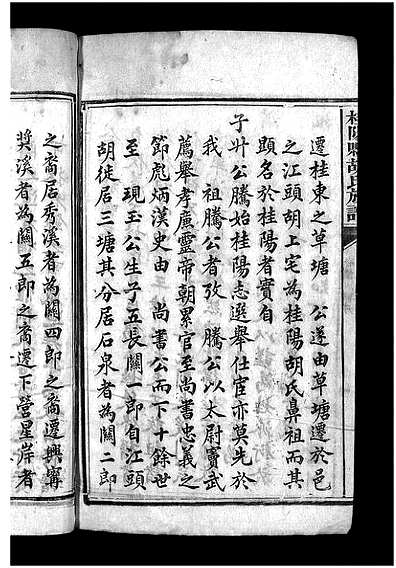 桂陽縣胡氏族譜
遷桂東之草塘　公遂由草塘遷於邑
之江頭胡上宅為桂陽胡氏鼻祖而其
顯名於桂陽者實自
子廾公騰始桂陽志選舉仕宦亦莫先於
我　祖騰公者攷　騰公以太尉竇武
薦舉孝廣靈帝朝累官至尚書忠義之
節彪炳漢史由　尚書公而下十餘世
至　現玉公生子五長關一郎自江頭
胡徙居三塘其分居石泉者為關二郎
之裔居秀溪者為關四郎之裔遷興寧
奬溪者為關五郎之裔遷下營星岸者